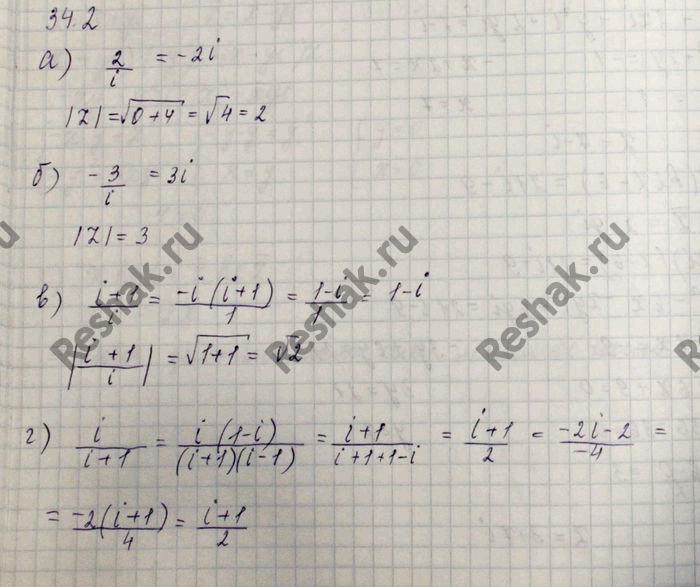 34.2
а) 2/i = -2i
|Z| = √(0+4) = √4 = 2
б) -3/i = 3i
|Z| = 3
в) (i+1)/i = (-i(i+1))/1 = (1-i)/1 = 1-i
|(i+1)/i| = √(1+1) = √2
г) i/(i+1) = (i(1-i))/((i+1)(i-1)) = (i+1)/(i+1+1-i) = (i+1)/2 = (-2i-2)/(-4) =
= (-2(i+1))/4 = (i+1)/2
Reshak.ru
Reshak.ru
Reshak.ru